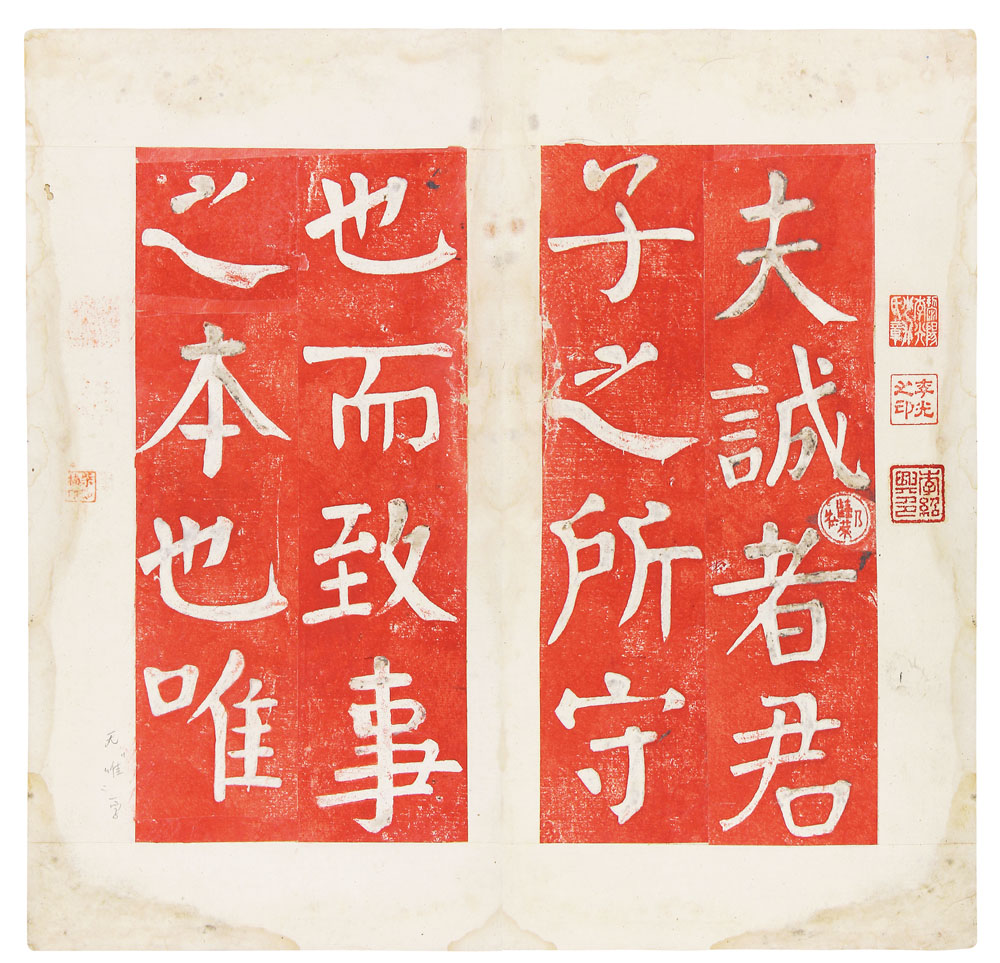 夫誠者君
子之所守
也而致事
之本也唯
李光
之印